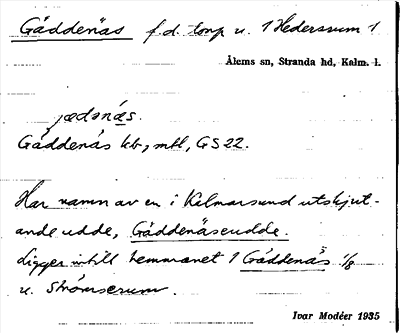 Gäddenäs f.d. torp u. 1 Hedersrum 1
Ålems sn, Stranda hd, Kalm. l.
jædənäs.
Gäddenäs kb, mtl, GS 22.
Har namn av en i Kalmarsund utskjut-
ande udde, Gäddenäseudde.
Ligger intill hemmanet 1 Gäddenäs 1/8
u. Strömserum.
Ivar Modéer 1935